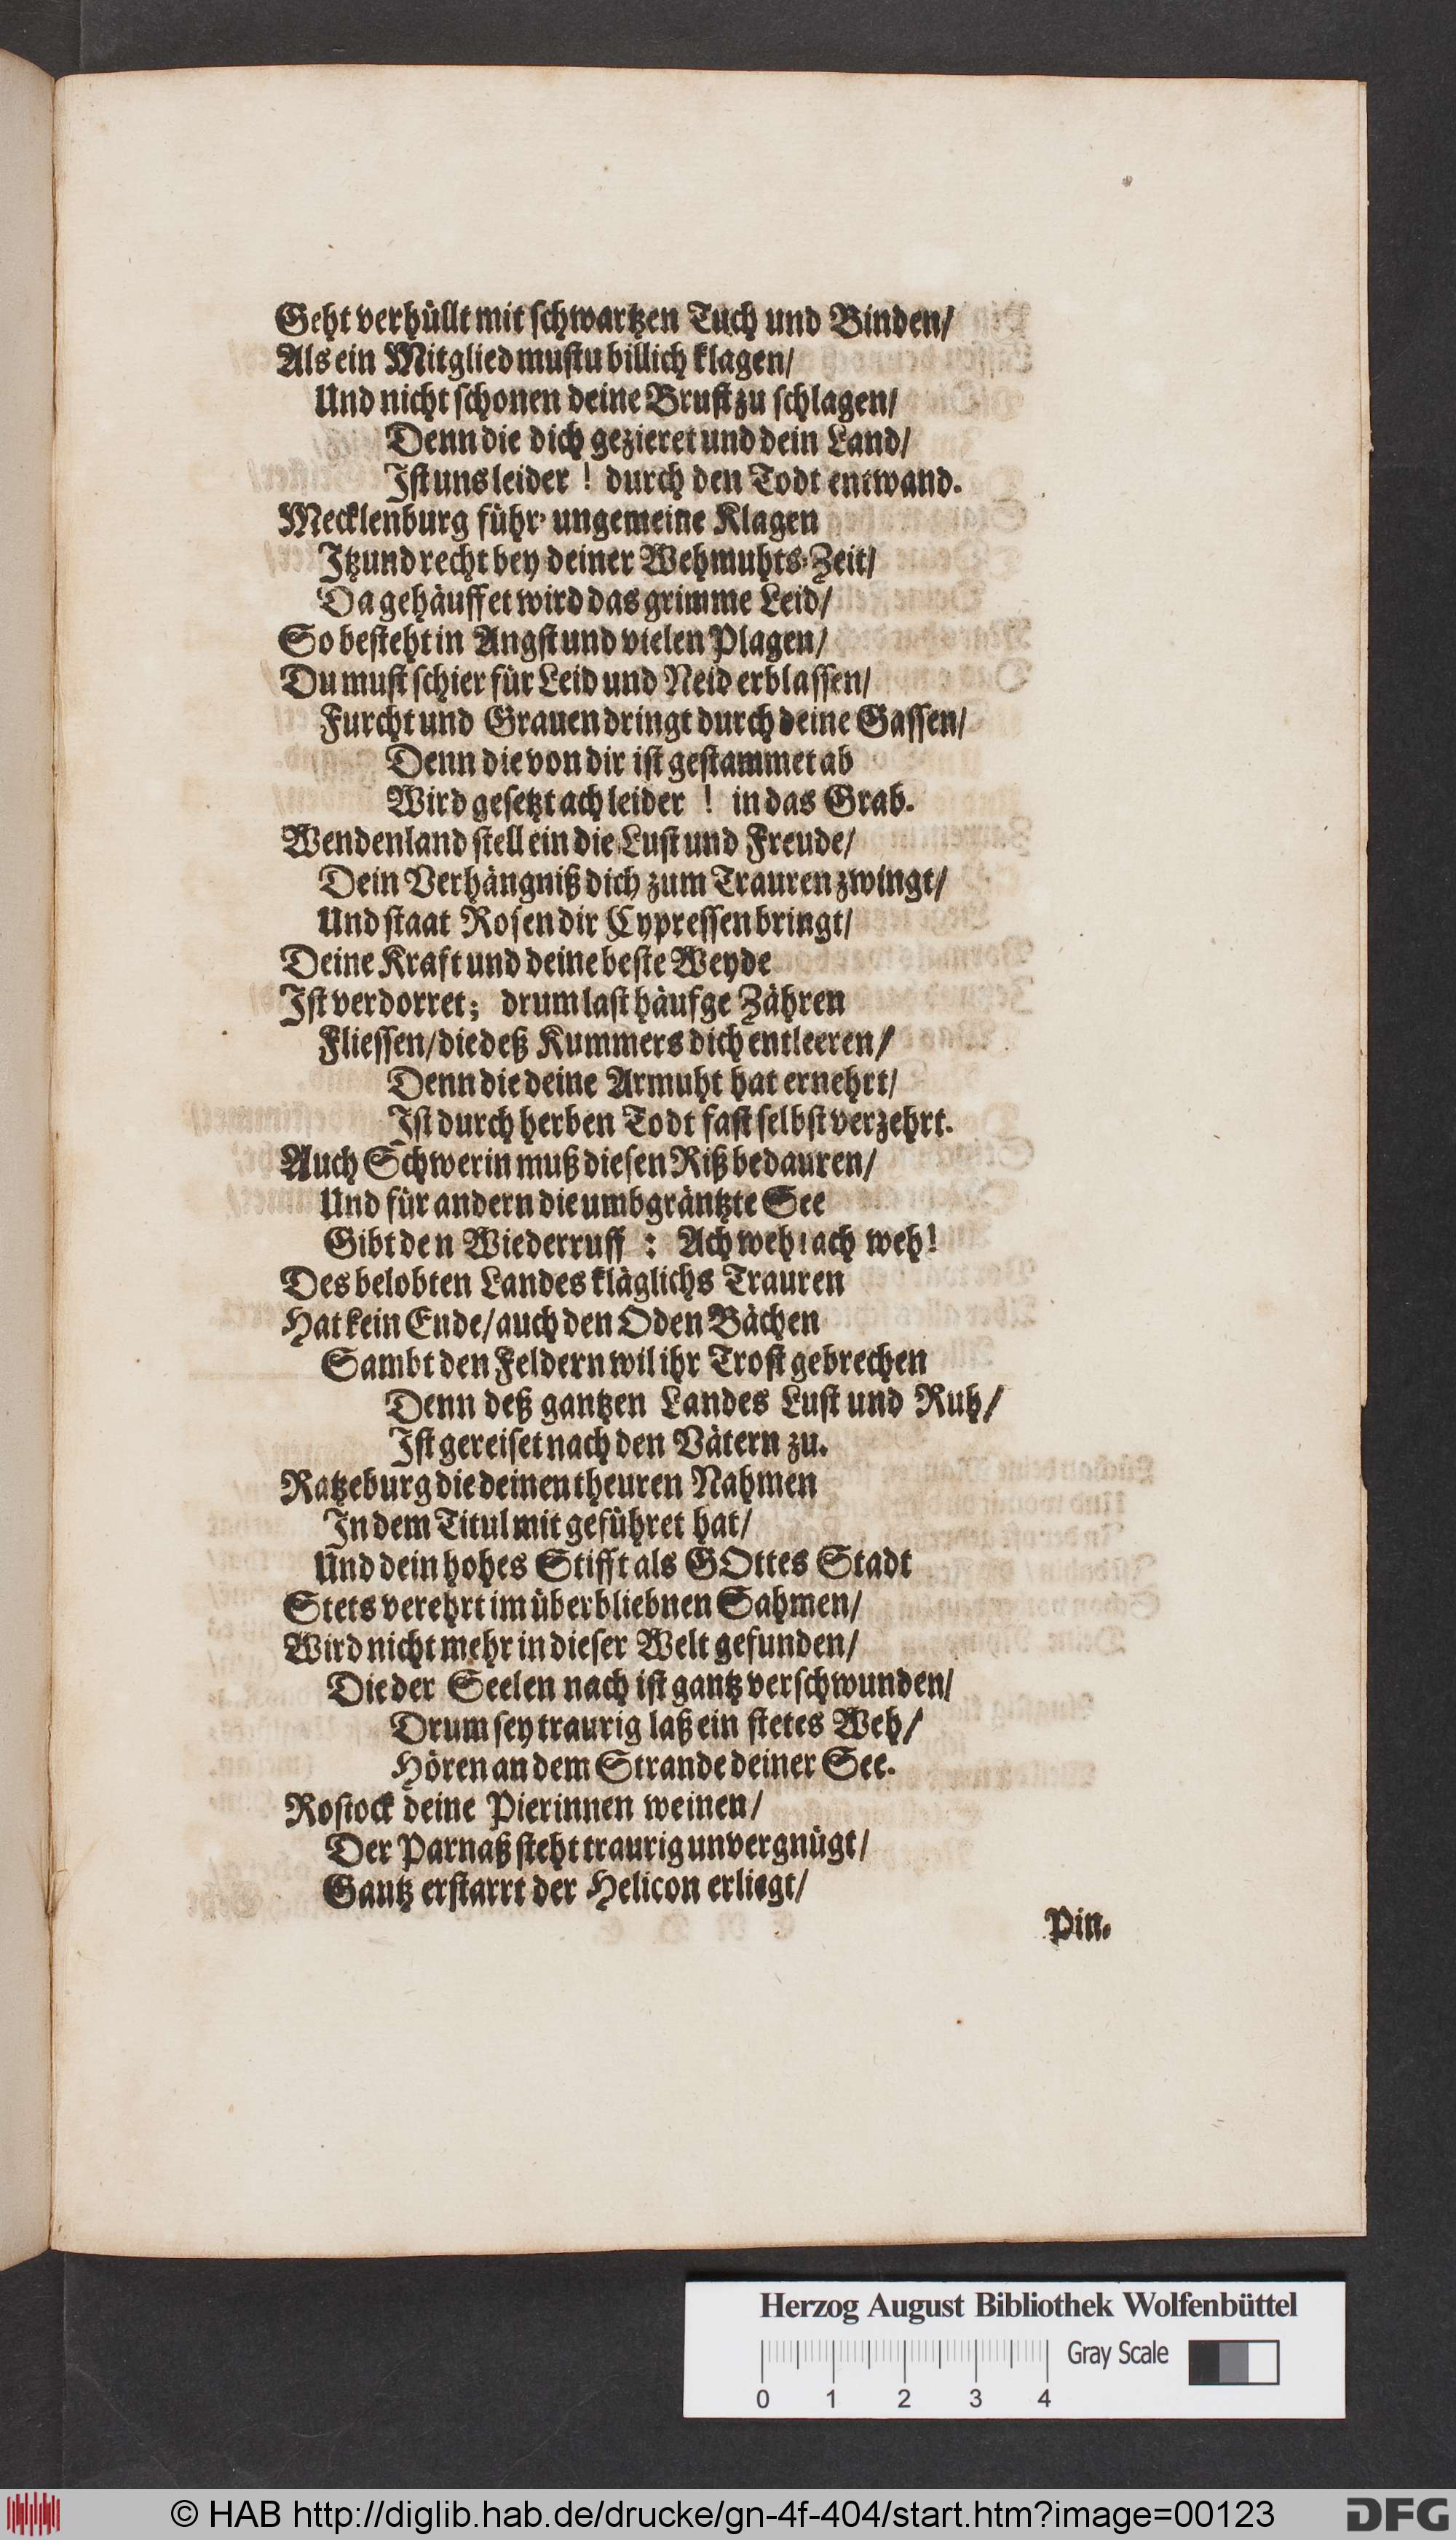 Geht verhüllt mit schwartzen Tuch und Binden/
Als ein Mitglied mustu billich klagen/
Und nicht schonen deine Brust zu schlagen/
Denn die dich gezieret und dein Land/
Ist uns leider! durch den Todt entwand.
Mecklenburg führ' ungemeine Klagen
Itzund recht bey deiner Wehmuhts-Zeit/
Da gehäuffet wird das grimme Leid/
So besteht in Angst und vielen Plagen/
Du must schier für Leid und Neid erblassen/
Furcht und Grauen dringt durch deine Gassen/
Denn die von dir ist gestammet ab
Wird gesetzt ach leider! in das Grab.
Wendenland stell ein die Lust und Freude/
Dein Verhängniß dich zum Trauren zwingt/
Und staat Rosen dir Cypressen bringt/
Deine Kraft und deine beste Weyde
Ist verdorret; drum last häufge Zähren
Fliessen/ die deß Kummers dich entleeren/
Denn die deine Armuht hat ernehrt/
Ist durch herben Todt fast selbst verzehrt.
Auch Schwerin muß diesen Riß bedauren/
Und für andern die umbgräntzte See
Gibt den Wiederruff: Ach weh! ach weh!
Des belobten Landes kläglichs Trauren
Hat kein Ende/ auch den Oden Bächen
Sambt den Feldern wil ihr Trost gebrechen
Denn deß gantzen Landes Lust und Ruh/
Ist gereiset nach den Vätern zu.
Ratzeburg die deinen theuren Nahmen
In dem Titul mit geführet hat/
Und dein hohes Stifft als GOttes Stadt
Stets verehrt im überbliebnen Sahmen/
Wird nicht mehr in dieser Welt gefunden/
Die der Seelen nach ist gantz verschwunden/
Drum sey traurig laß ein stetes Weh/
Hören an dem Strande deiner See.
Rostock deine Pierinnen weinen/
Der Parnaß steht traurig unvergnügt/
Gantz erstarrt der Helicon erliegt/
Pin-
Herzog August Bibliothek Wolfenbüttel
Gray Scale
0 1 2 3 4
© HAB http://diglib.hab.de/drucke/gn-4f-404/start.htm?image=00123
DFG